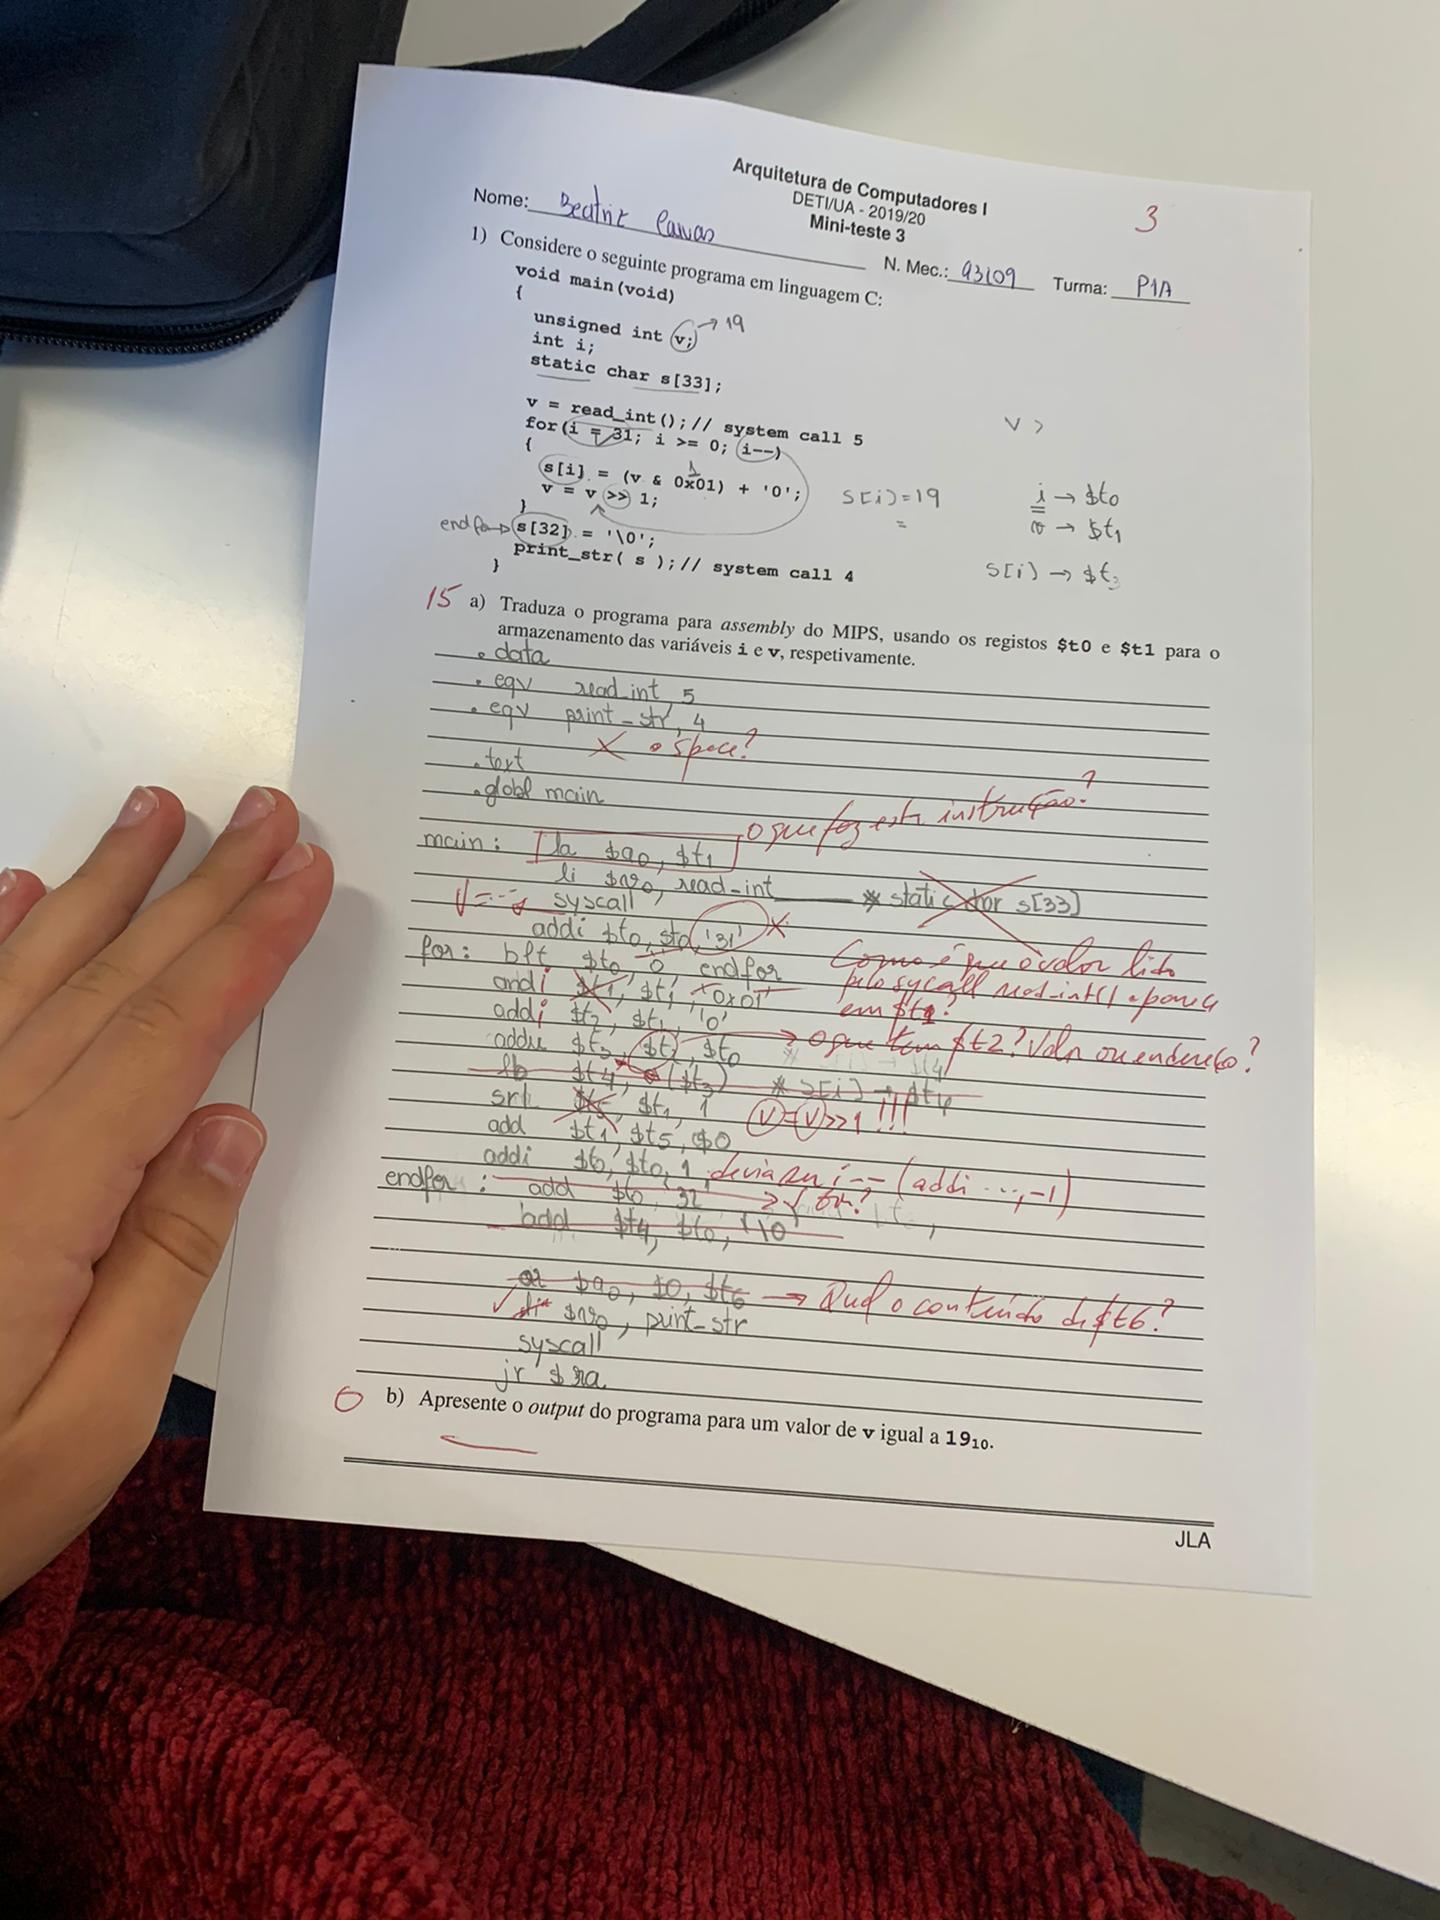 Arquitetura de Computadores I
DETI/UA - 2019/20
Mini-teste 3
3
Nome: Beatriz
N. Mec.: 93109 Turma: P1A
1) Considere o seguinte programa em linguagem C:
void main(void)
{
unsigned int v; → 19
int i;
static char s[33];
v = read_int();// system call 5
v >
for(i = 31; i >= 0; i--)
{
s[i] = (v & 0x01) + '0';
s[i]=19
i → $t0
v = v >> 1;
v → $t1
}
endfor→ s[32] = '\0';
print_str( s );// system call 4
s[i] → $t3
}
15 a) Traduza o programa para assembly do MIPS, usando os registos $t0 e $t1 para o
armazenamento das variáveis i e v, respetivamente.
.data
.eqv read_int, 5
.eqv print_str, 4
X .space?
.text
.globl main
main: la $a0, $t1 o que faz esta instrução?
li $v0, read_int * static char s[33]
v=... syscall
addi $t0, $t0, '31' X
for: blt $t0, 0, endfor Como é que o valor lido
andi $t1, $t1, '0x01' pelo syscall read_int() aparece
addi $t2, $t1, '0' em $t1?
addu $t3, $t2, $t0 → o que tem $t2? Valor ou endereço?
lb $t4, 0($t3) * s[i] → $t4
srl $t5, $t1, 1 v=v>>1 !!!
add $t1, $t5, $0
addi $t0, $t0, 1 devia ser i-- (addi ...,-1)
endfor: add $t0, 32 → j for?
add $t4, $t0, '\0'
or $a0, $0, $t6 → Qual o conteúdo de $t6?
li $v0, print_str
syscall
jr $ra
0 b) Apresente o output do programa para um valor de v igual a 19₁₀.
JLA